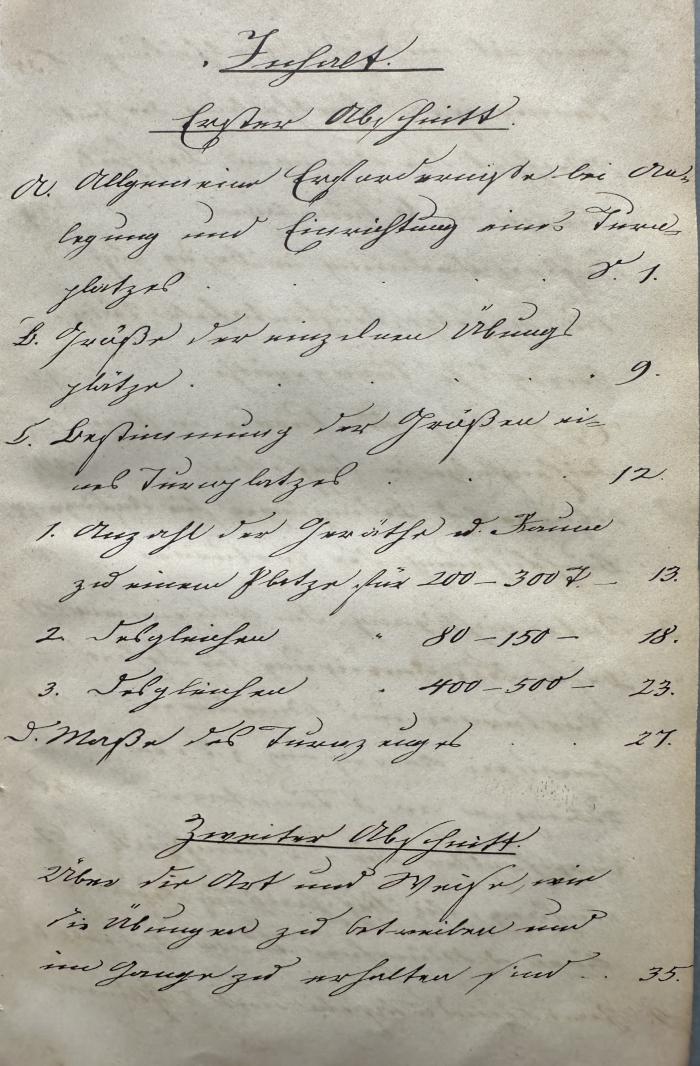 Inhalt.
Erster Abschnitt.
A. Allgemeine Erfordernisse bei An-
legung und Einrichtung eines Turn-
platzes . . . . . S. 1.
B. Größe der einzelnen Übungs
plätze . . . . . . 9.
C. Bestimmung der Größen ei-
nes Turnplatzes . . . 12.
1. Anzahl der Geräthe u. Räume
zu einem Platze für 200 – 300 T. – 13.
2. Desgleichen " 80 – 150 – 18.
3. Desgleichen " 400 – 500 – 23.
D. Maße des Turnzeuges . . 27.
Zweiter Abschnitt.
Über die Art und Weise, wie
die Übungen zu betreiben und
im Gange zu erhalten sind . . 35.